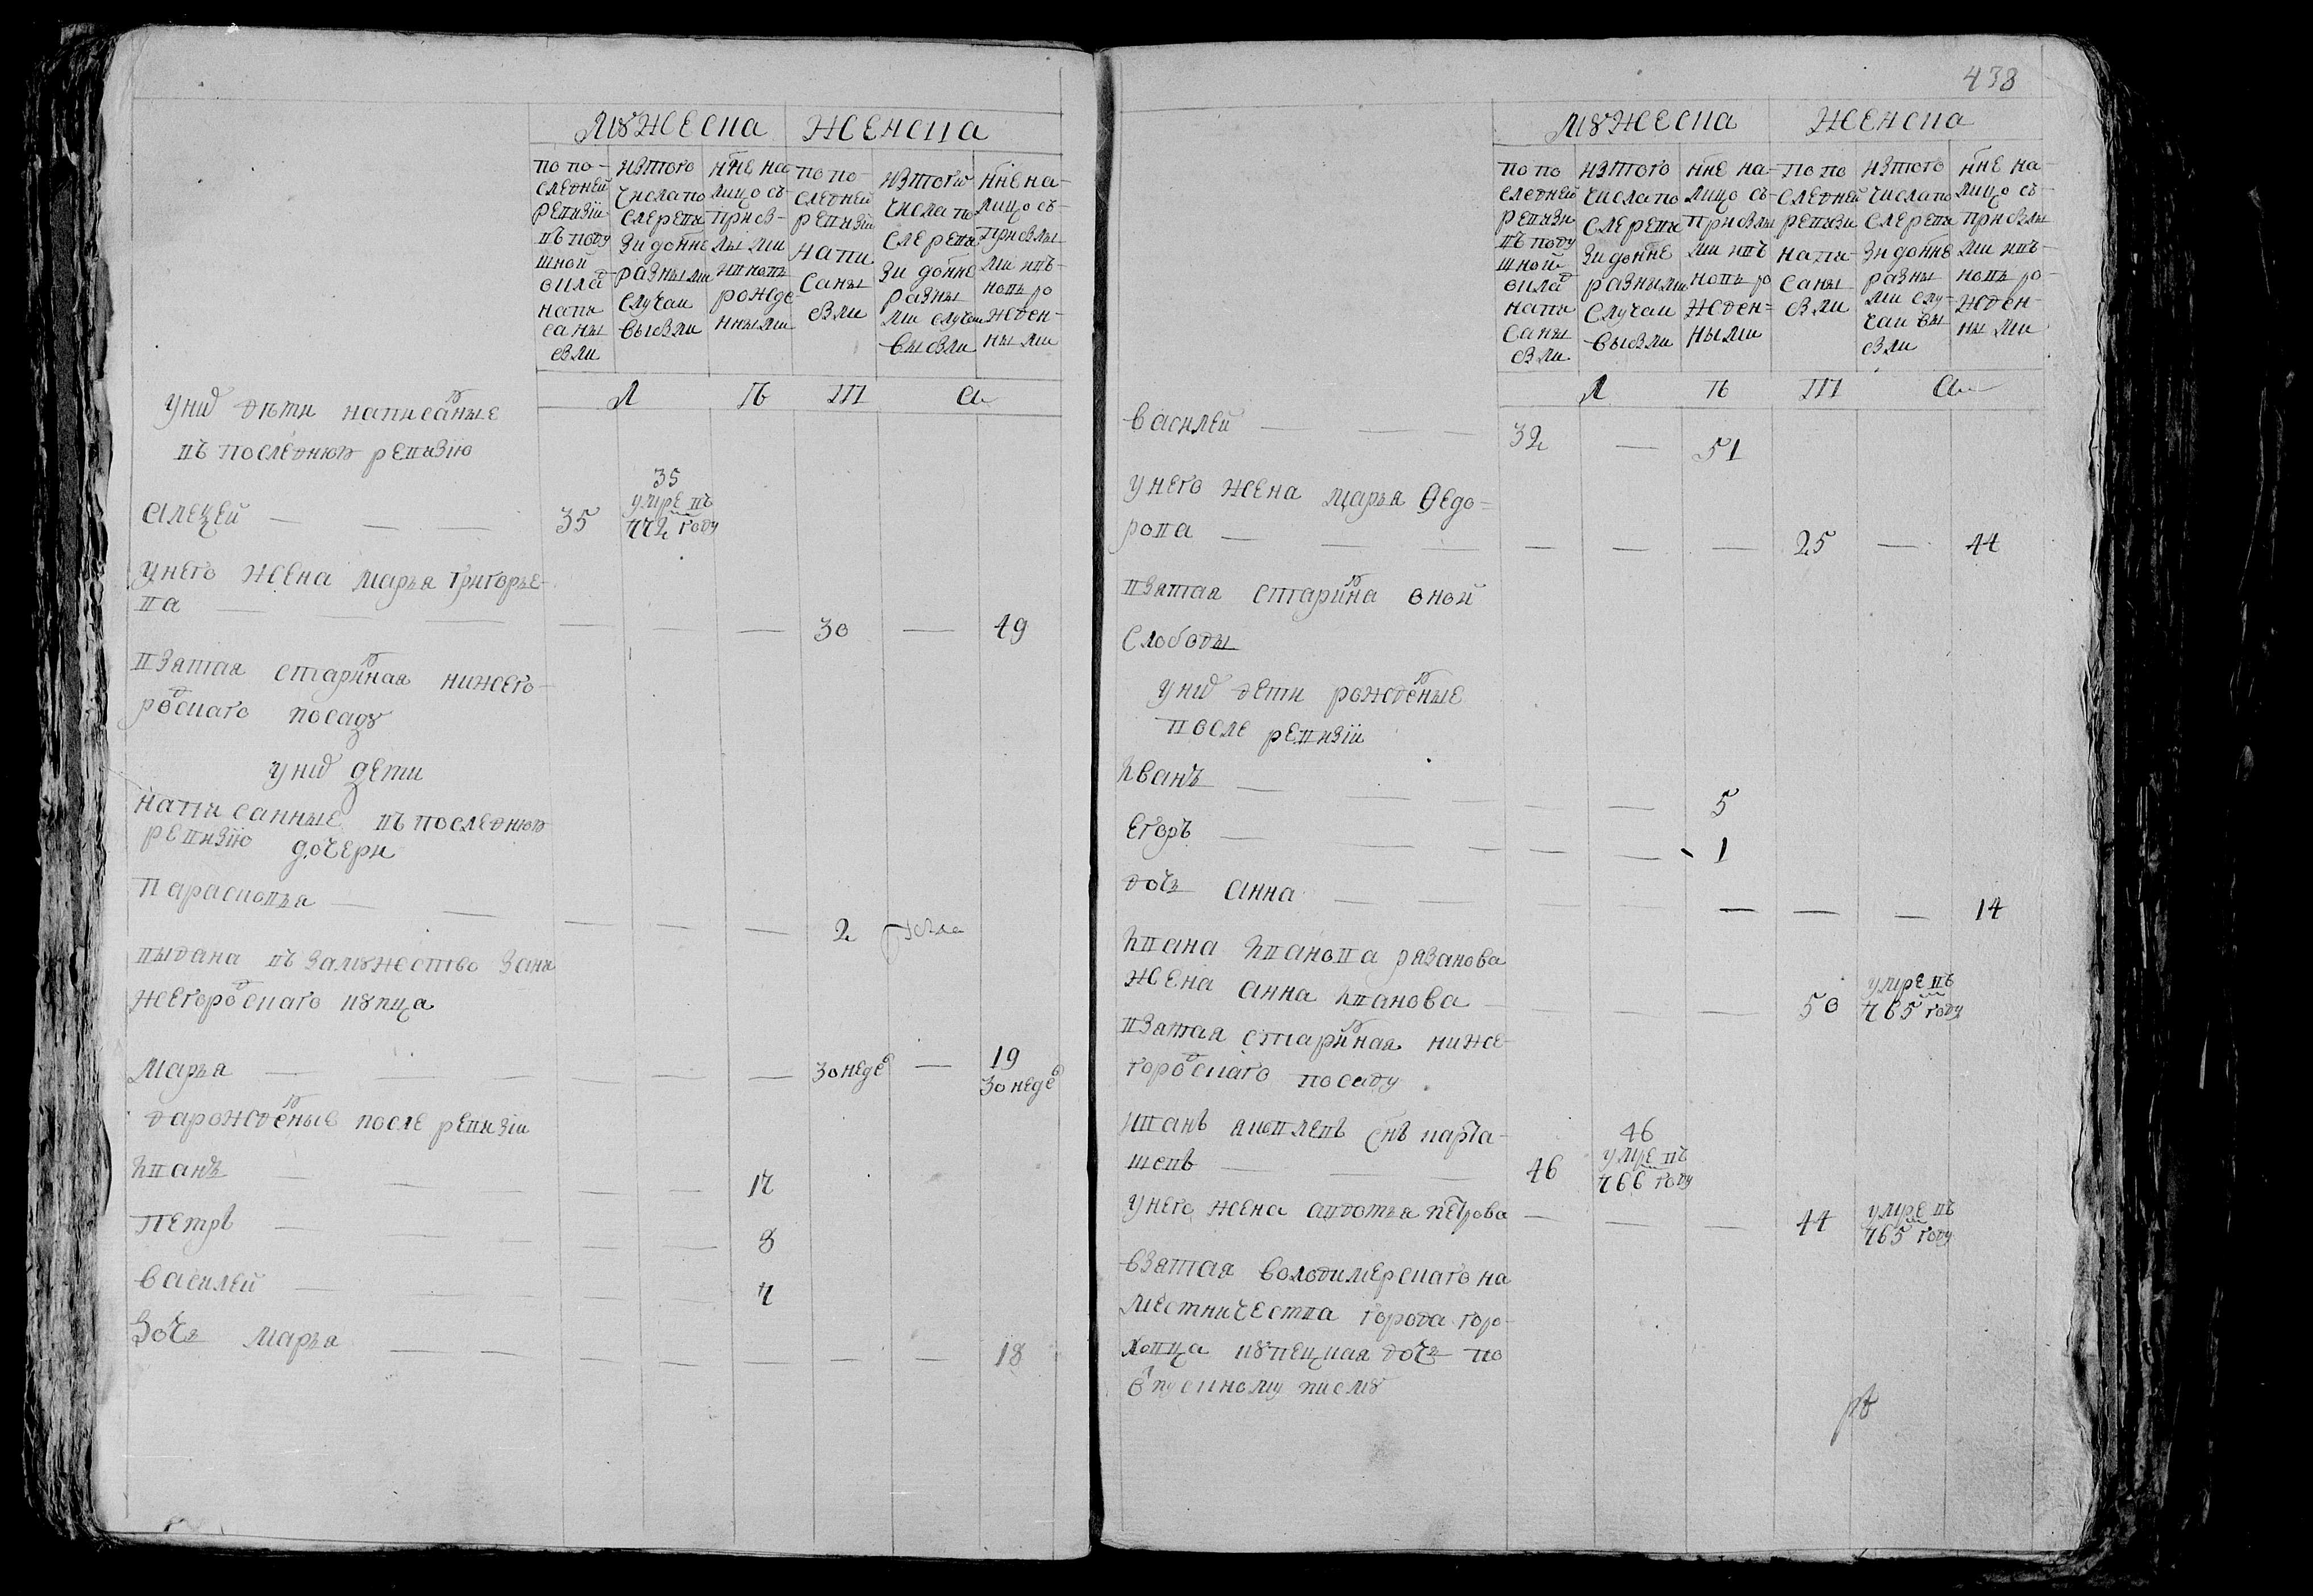 Мужеска Женска
по по-
следней
ревизiи
въ поду
шной
окладъ
напи
саны
были
изтого
числа по
сле реви
зи до нне
разными
случаи
выбыли
нне на
лицо съ
прибы-
лы ми
и вновь
рожде-
нными
по по-
следней
ревизiи
напи
саны
были
изтого
числа по
сле реви
зи до нне
разны
ми случаи
выбыли
нне на-
лицо съ-
прибылы
ми ивъ-
новь ро
жден-
ны ми
Л В Ш А
у них дети написаные
въ последнюю ревизiю
Алеѯей 35
35
умре въ
772 году
у него жена марья григорье-
ва 30 49
взятая стариная нижего-
родскаго посаду
у них дети
написанные въ последнюю
ревизiю дочери
Парасковья 2
выдана въ замужество за ни
жегородскаго купца
марья 30 недѣ 19
30 недѣ
да рожденые после ревизiи
Иванъ 17
Петръ 8
Василей 7
дочь марья 18
438
Мужеска Женска
по по
следней
ревизи
въ поду
шной
окладъ
напи
саны
были
изтого
числа по
сле реви
зи до нне
разными
случаи
выбыли
нне на-
лицо съ-
прибылы
ми ивъ
новь ро
жден-
ными
по по
следней
ревизи
напи-
саны
были
изтого
числа по
сле реви
зи до нне
разны
ми слу-
чаи вы
были
нне на
лицо съ-
прибылы
ми ивъ-
новь ро-
жден-
ны ми
Л В Ш А
Василей 32 51
у него жена марья Ѳедо-
рова 25 44
взятая старина оной
слободы
у них дети рожденые
после ревизiи
Иванъ 5
Егоръ 1
дочь Анна 14
Ивана Иванова рязанова
жена анна Иванова 50 умре въ
765 году
взятая стариная ниже-
городскаго посаду
Иванъ яковлевъ снъ карта-
шевъ 46
46
умре въ
766 году
у него жена авдотья петрова 44 умре въ
765 году
взятая володимерскаго на
местничества города горо-
ховца купецкая дочь по
отпускному писму